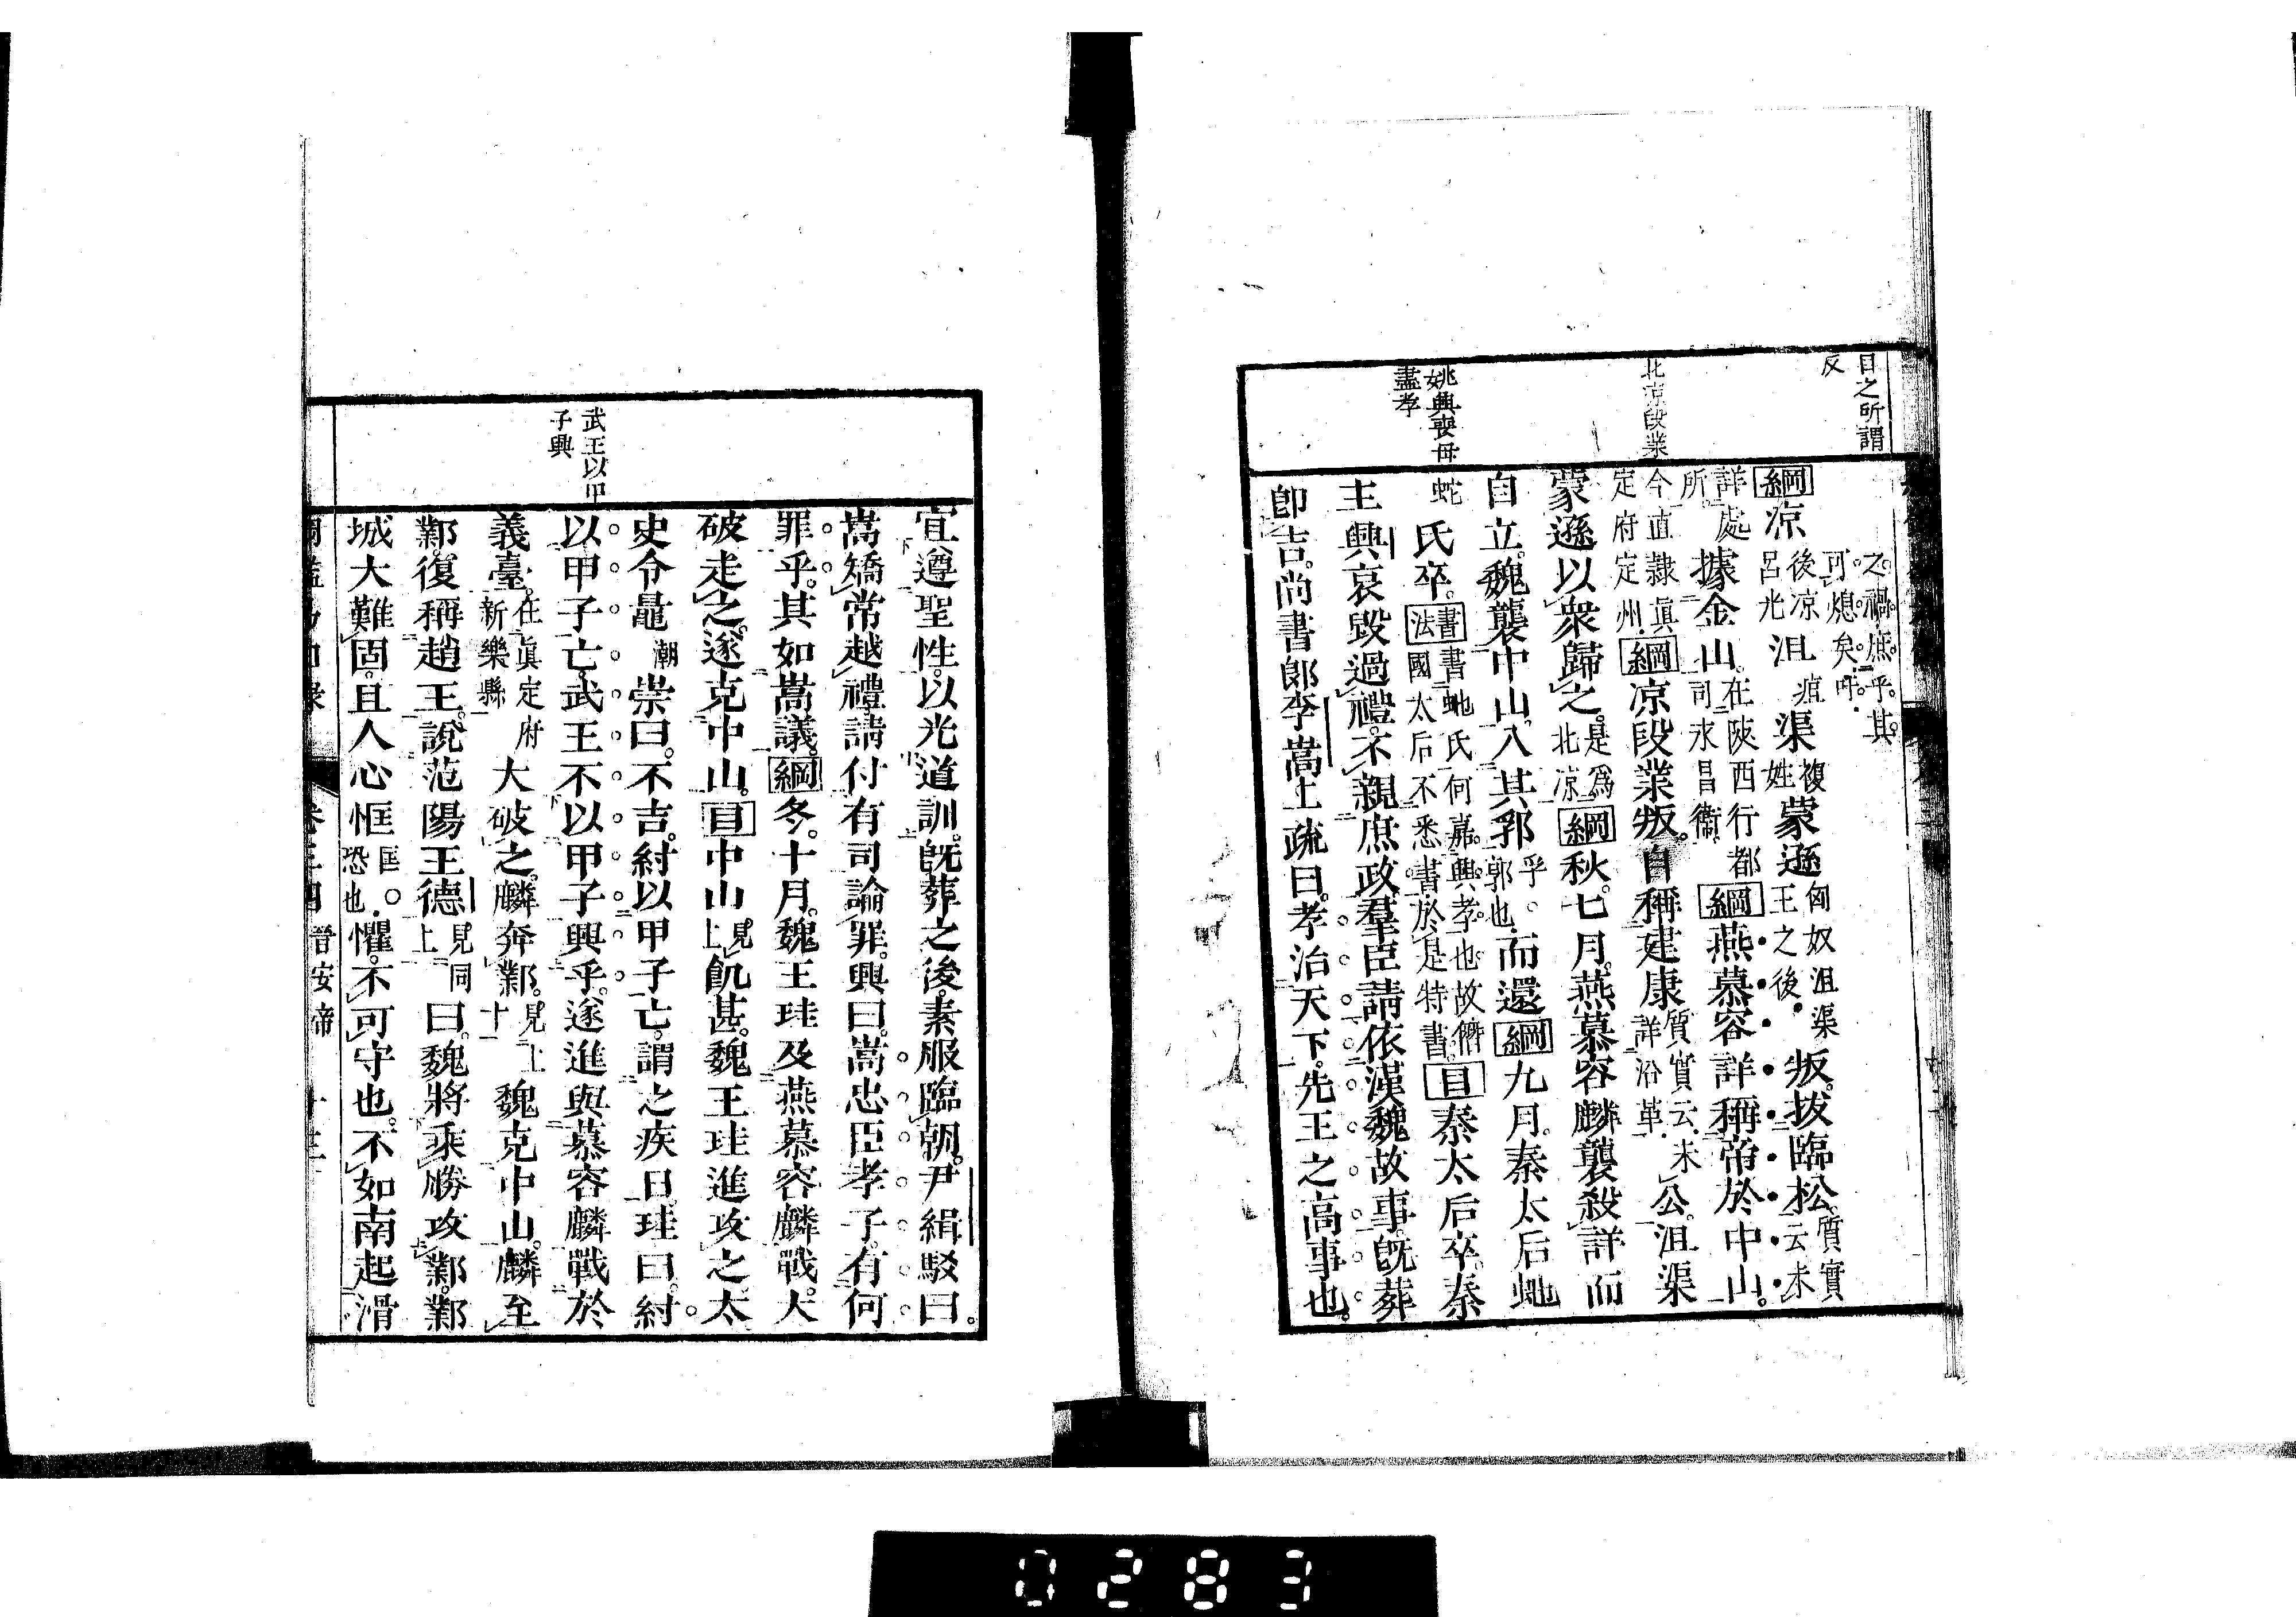 目之所謂
反
北凉段業
姚興喪母
盡孝
之禍庶乎其
可熄矣吁
綱凉後凉呂光沮疽渠複姓蒙遜匈奴沮渠王之後叛拔臨松質實云未
詳處所據金山在陝西行都司永昌衞綱燕慕容詳稱帝於中山
今直隸眞定府定州綱凉段業叛自稱建康質實云未詳沿革公沮渠
蒙遜以衆歸之是爲北凉綱秋七月燕慕容麟襲殺詳而
自立魏襲中山入其郛孚郭也而還綱九月秦太后虵
蛇氏卒書法書虵氏何嘉興孝也故僭國太后不悉書於是特書目秦太后卒秦
主興哀毀過禮不親庶政羣臣請依漢魏故事旣葬
卽吉尚書郞李嵩上疏曰孝治天下先王之高事也
武王以甲
子興
宜遵聖性以光道訓旣葬之後素服臨朝尹緝駁曰
嵩矯常越禮請付有司論罪興曰嵩忠臣孝子有何
罪乎其如嵩議綱冬十月魏王珪及燕慕容麟戰大
破走之遂克中山目中山見上飢甚魏王珪進攻之太
史令鼂潮崇曰不吉紂以甲子亡謂之疾日珪曰紂
以甲子亡武王不以甲子興乎遂進與慕容麟戰於
義臺在眞定府新樂縣大破之麟奔鄴見上十一魏克中山麟至
鄴復稱趙王說范陽王德見同上曰魏將乘勝攻鄴鄴
城大難固且人心恇匡恐也懼不可守也不如南起滑
卷三四 晉安帝
0283